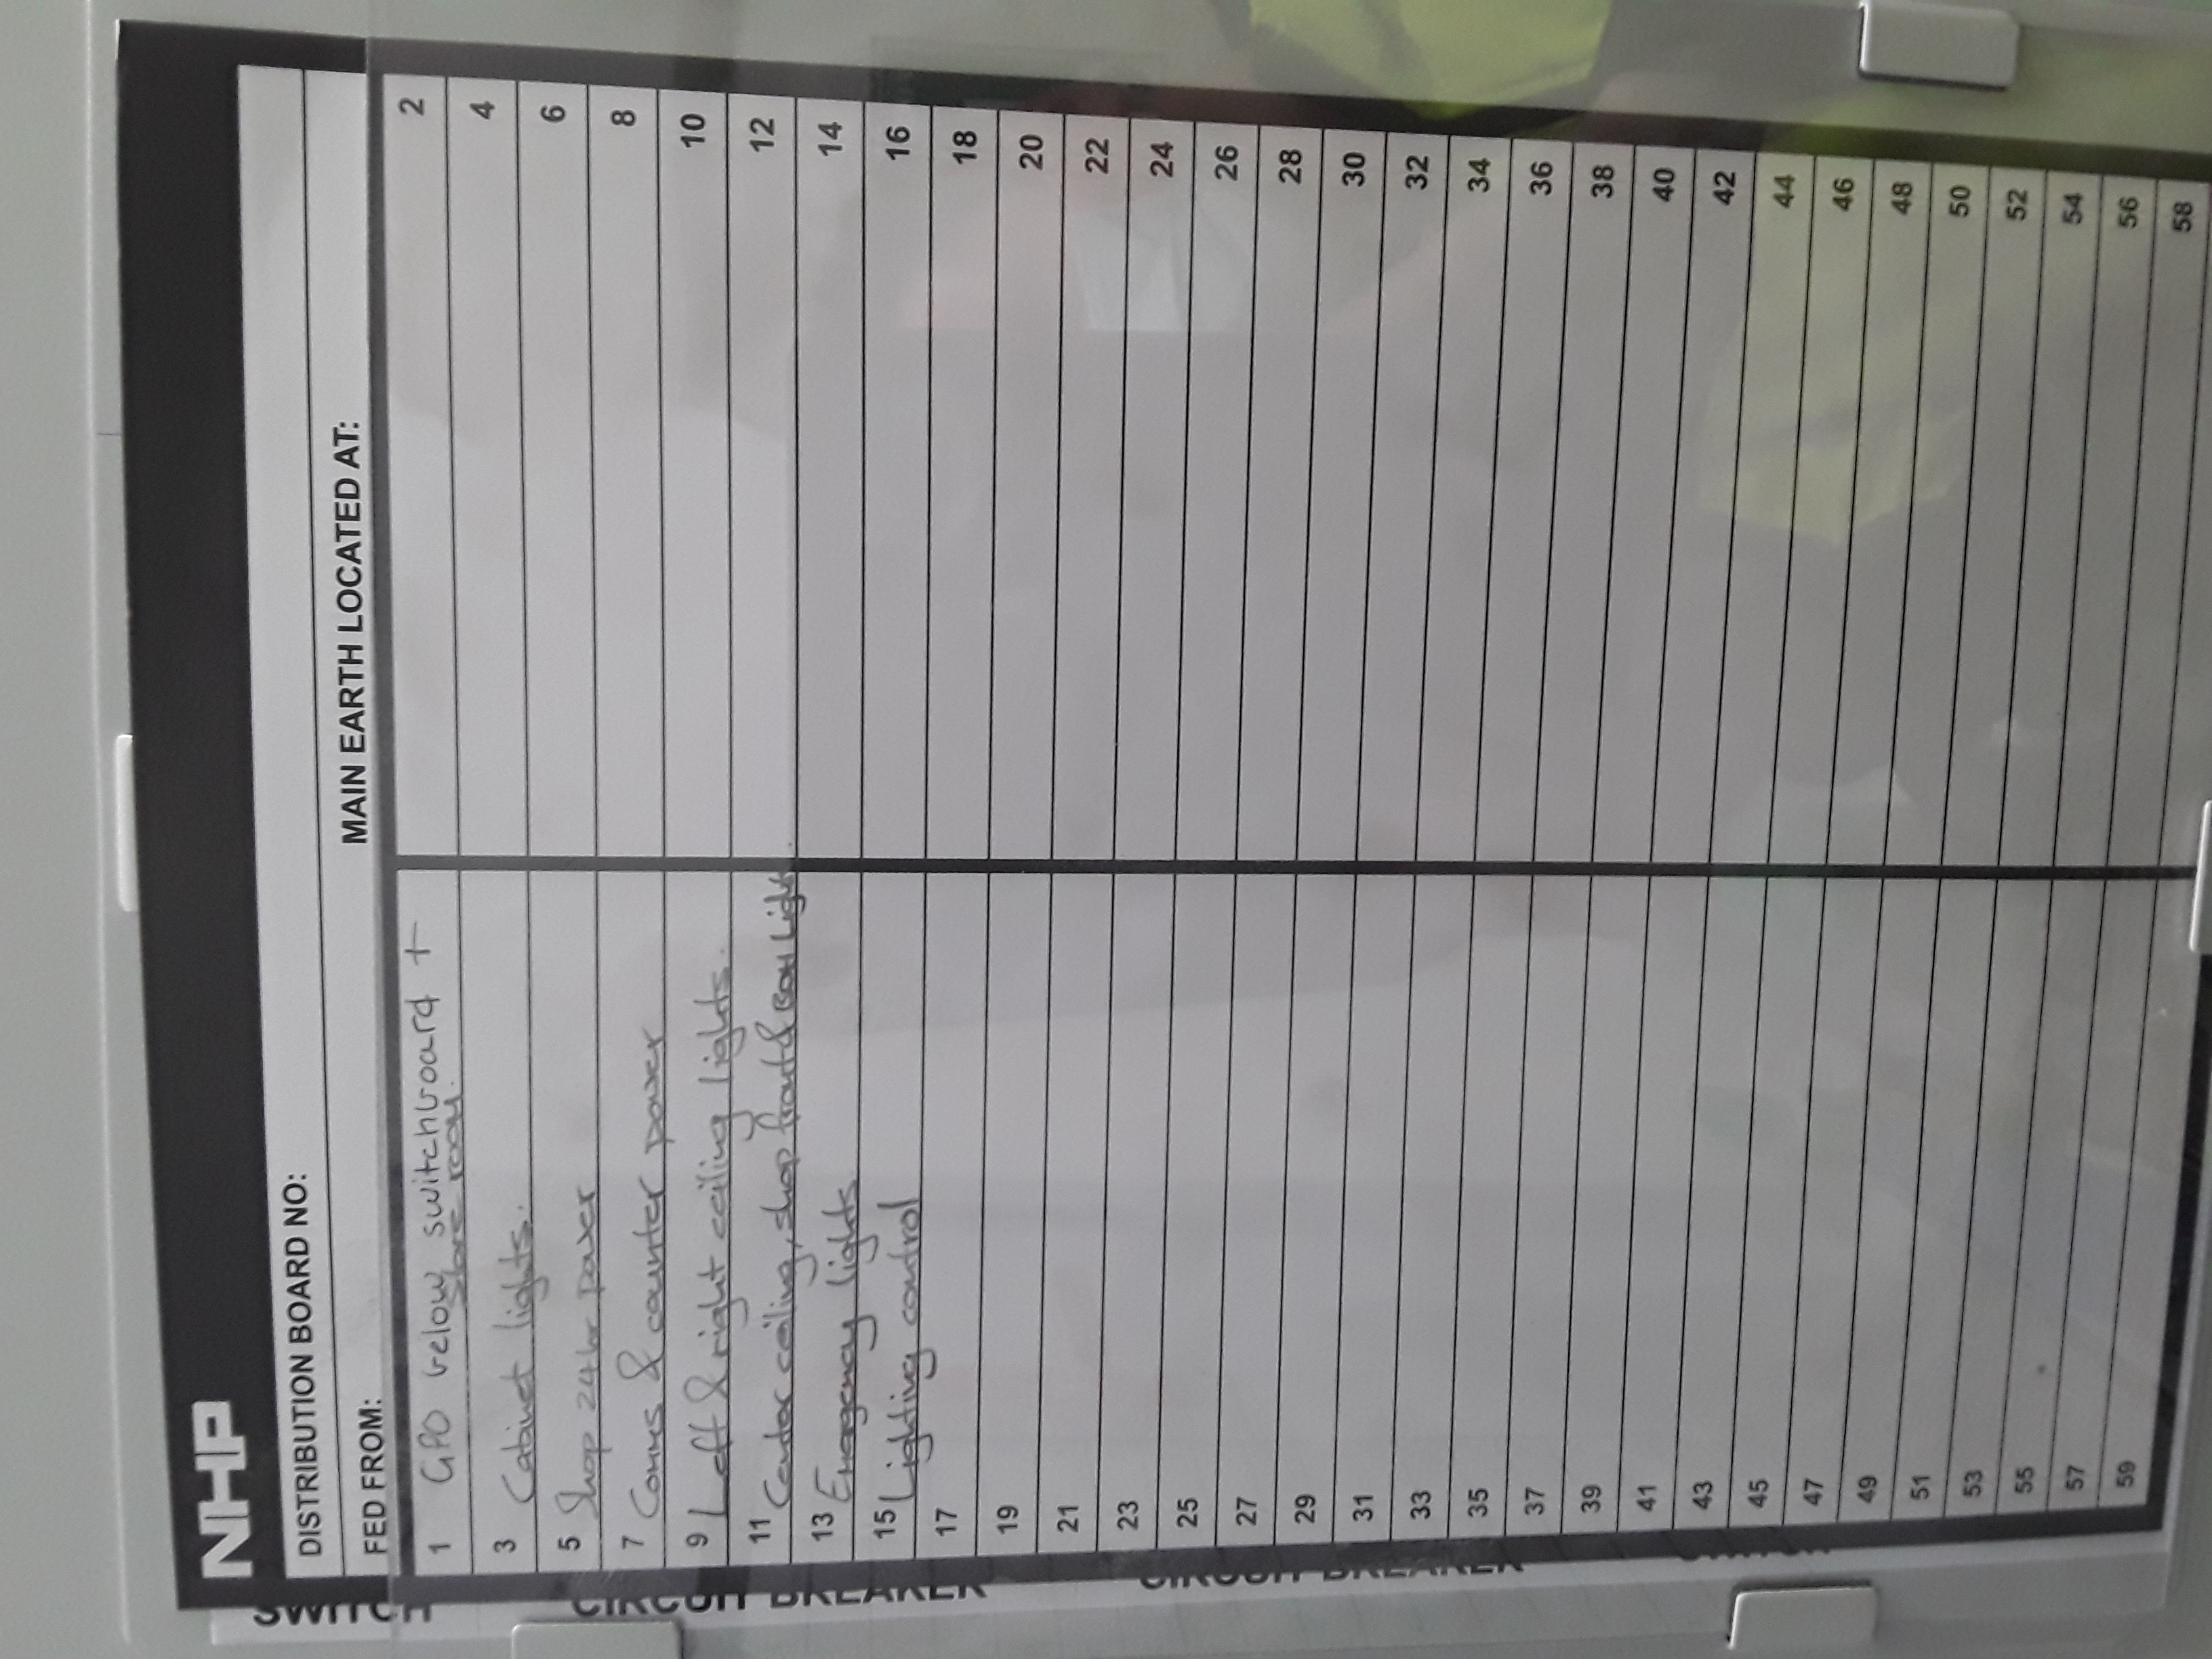 NHP
DISTRIBUTION BOARD NO:
FED FROM: MAIN EARTH LOCATED AT:
1 GPO below switchboard + 2
store room.
3 Cabinet lights. 4
5 Shop 24hr power 6
7 Comms & counter power 8
9 Left & right ceiling lights. 10
11 Center ceiling, shop front & BOH Light. 12
13 Emergency lights 14
15 Lighting control 16
17 18
19 20
21 22
23 24
25 26
27 28
29 30
31 32
33 34
35 36
37 38
39 40
41 42
43 44
45 46
47 48
49 50
51 52
53 54
55 56
57 58
59
SWITCH
CIRCUIT BREAKER
CIRCUIT BREAKER
SWITCH